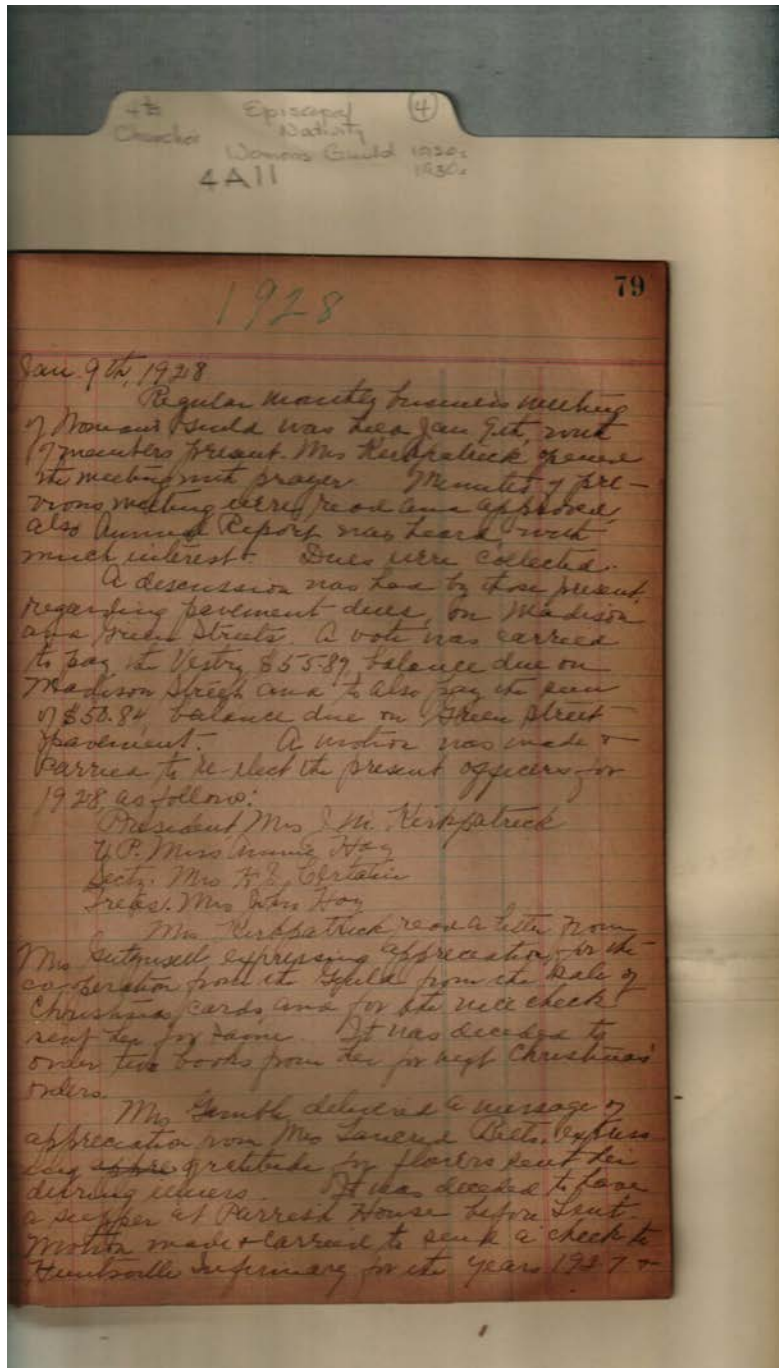 Episcopal ④
Churches Nativity
Womens Guild 1920s
1930s
4A11
79
1928
Jan. 9th, 1928
Regular monthly business meeting
of Woman's Guild was held Jan 9th, with
members present. Mrs Kirkpatrick opened
the meeting with prayer. Minutes of pre-
vious meeting were read and approved,
also Annual Report was heard, with
much interest. Dues were collected.
A discussion was had by those present,
regarding pavement dues, on Madison
and Green Streets. A vote was carried
to pay the Vestry $55.89, balance due on
Madison Street and to also pay the sum
of $50.84, balance due on Green Street
pavement. A motion was made &
carried to re-elect the present officers for
1928, as follows:
President Mrs J. M. Kirkpatrick
V.P. Miss Annie Hay
Secty. Mrs
Treas. Mrs John Hay
Mrs. Kirkpatrick read a letter from
Mrs expressing appreciation for the
cooperation from the Guild from the sale of
Christmas cards, and for the nice check
sent her for same. It was decided to
order two books from her for next Christmas
orders.
Mrs Gamble delivered a message of
appreciation from Mrs Betts, express-
ing gratitude for flowers sent her
during illness. It was decided to have
a supper at Parrish House before Lent.
Motion made & carried to send a check to
Huntsville Infirmary for the years 1927 &